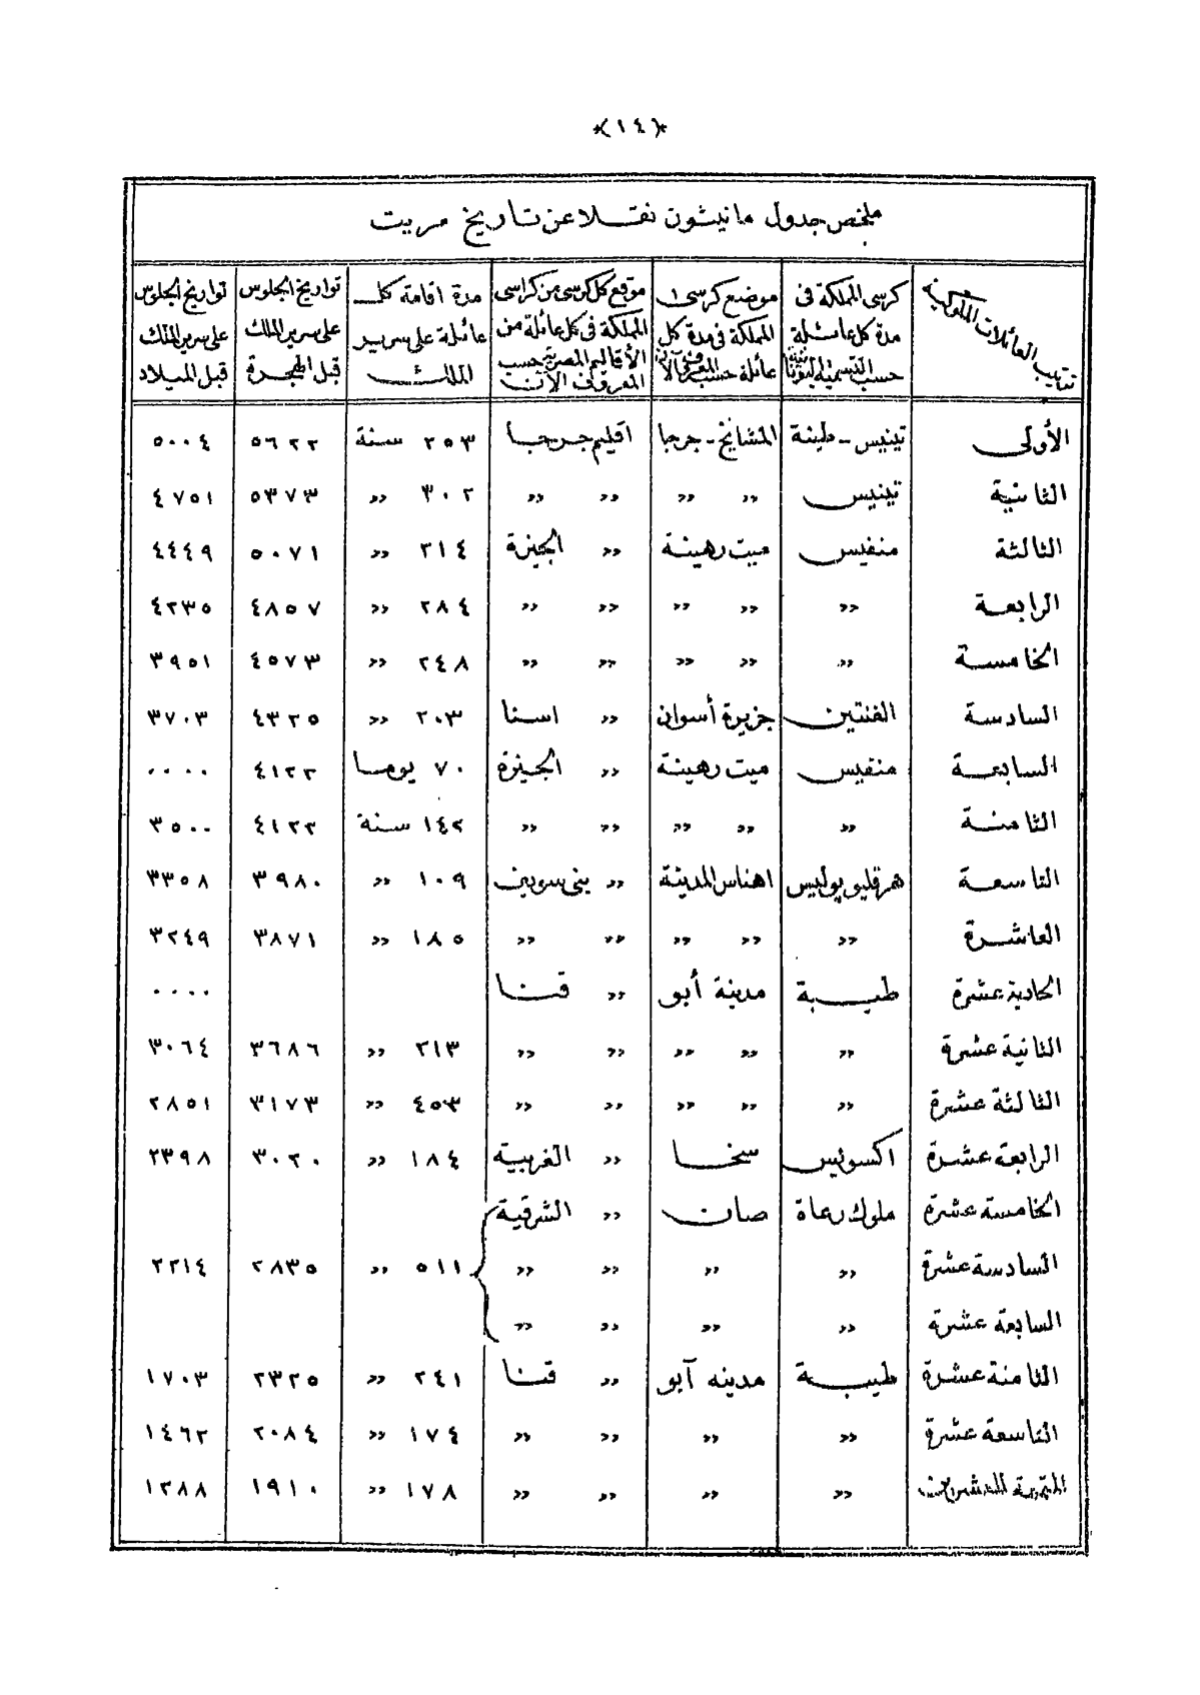 ﴿١٤﴾
ملخص جدول مانيثون نقلا عن تاريخ مريت
ترتيب العائلات الملوكية | كرسى المملكة فى مدة كل عائلة حسب التسمية اليونانية | موضع كرسى المملكة فى مدة كل عائلة حسب المعروف الآن | موقع كل كرسى من كراسى المملكة فى كل عائلة من الأقاليم المصرية حسب المعروف الآن | مدة اقامة كل عائلة على سرير الملك | تواريخ الجلوس على سرير الملك قبل الهجرة | تواريخ الجلوس على سرير الملك قبل الميلاد
الأولى | تينيس - طينة | المشايخ - جرجا | اقليم جرجا | ٢٥٣ سنة | ٥٦٢٢ | ٥٠٠٤
الثانية | تينيس | » » | » » | ٣٠٢ » | ٥٣٧٣ | ٤٧٥١
الثالثة | منفيس | ميت رهينة | » الجيزة | ٢١٤ » | ٥٠٧١ | ٤٤٤٩
الرابعة | » | » » | » » | ٢٨٤ » | ٤٨٥٧ | ٤٢٣٥
الخامسة | » | » » | » » | ٢٤٨ » | ٤٥٧٣ | ٣٩٥١
السادسة | الفنتين | جزيرة أسوان | » اسنا | ٢٠٣ » | ٤٣٢٥ | ٣٧٠٣
السابعة | منفيس | ميت رهينة | » الجيزة | ٧٠ يوما | ٤١٢٢ | ٠٠٠٠
الثامنة | » | » » | » » | ١٤٢ سنة | ٤١٢٢ | ٣٥٠٠
التاسعة | هرقليوپوليس | اهناس المدينة | » بنى سويف | ١٠٩ » | ٣٩٨٠ | ٣٣٥٨
العاشرة | » | » » | » » | ١٨٥ » | ٣٨٧١ | ٣٢٤٩
الحادية عشرة | طيبة | مدينة أبو | » قنا | ٠٠٠٠
الثانية عشرة | » | » » | » » | ٢١٣ » | ٣٦٨٦ | ٣٠٦٤
الثالثة عشرة | » | » » | » » | ٤٥٣ » | ٣١٧٣ | ٢٨٥١
الرابعة عشرة | اكسويس | سخا | » الغربية | ١٨٤ » | ٣٠٢٠ | ٢٣٩٨
الخامسة عشرة | ملوك رعاة | صان | » الشرقية
السادسة عشرة | » | » | » » | ٥١١ » | ٢٨٣٥ | ٢٢١٤
السابعة عشرة | » | » | » »
الثامنة عشرة | طيبة | مدينه آبو | » قنا | ٢٤١ » | ٢٣٢٥ | ١٧٠٣
التاسعة عشرة | » | » | » » | ١٧٤ » | ٢٠٨٤ | ١٤٦٢
المتممة للعشرين | » | » | » » | ١٧٨ » | ١٩١٠ | ١٢٨٨